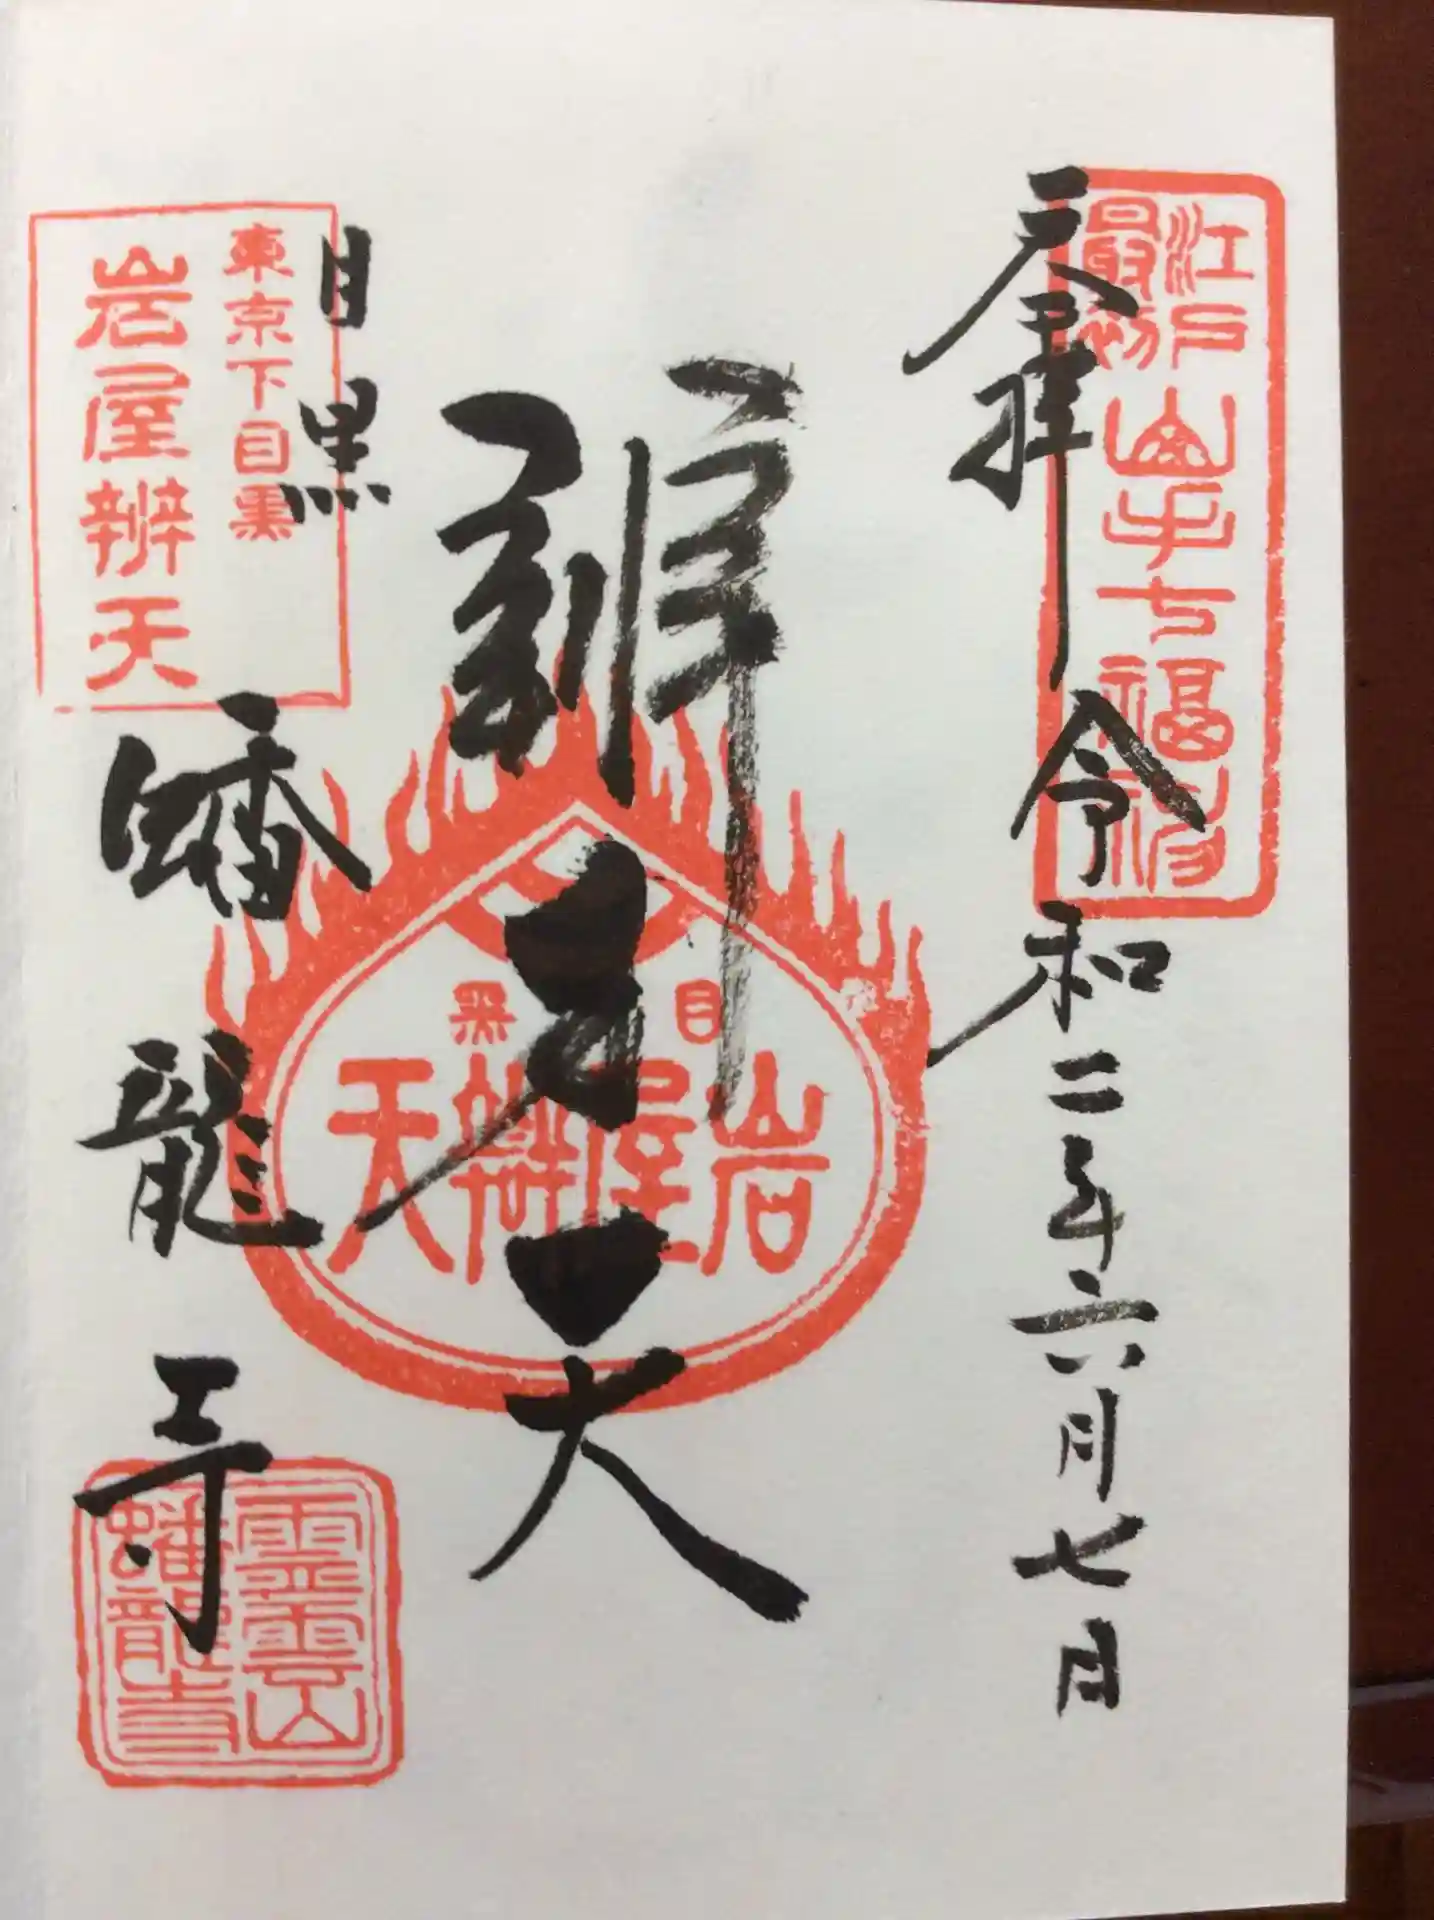 江戸最初山手七福神
奉拝
令和二年六月七日
辨才天
目黒
岩屋辨天
東京下目黒
岩屋辨天
目黒
蟠龍寺
霊雲山
蟠龍寺